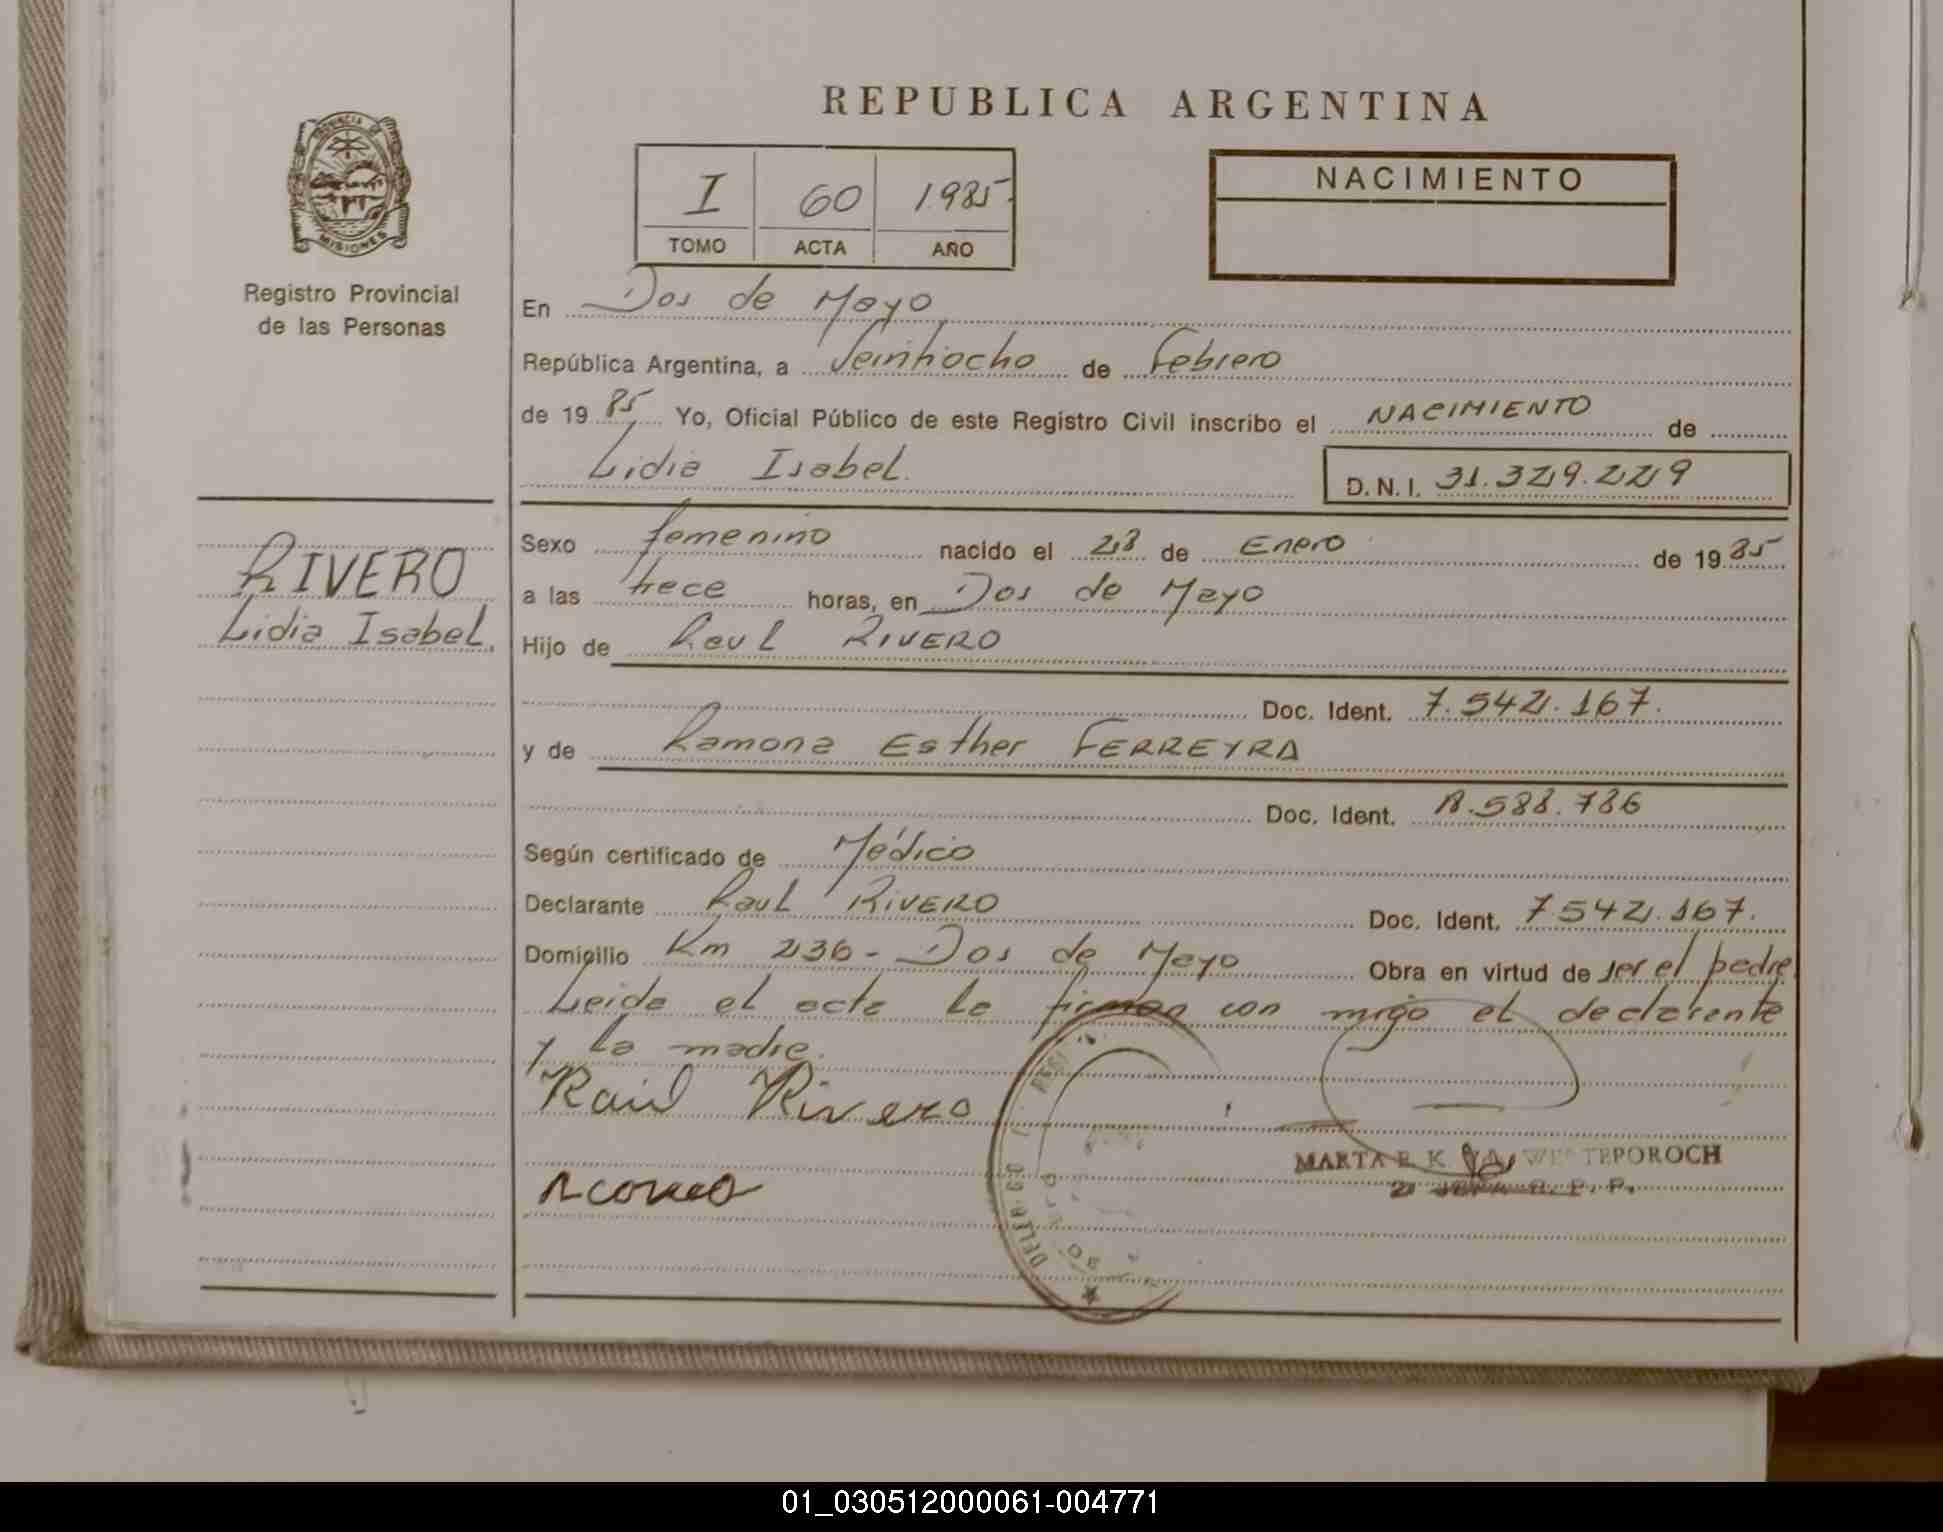 REPUBLICA ARGENTINA
PROVINCIA DE
MISIONES
Registro Provincial
de las Personas
I 60 1.985
TOMO ACTA AÑO
NACIMIENTO
En Dos de Mayo
República Argentina, a Veintiocho de Febrero
de 19 85 Yo, Oficial Público de este Registro Civil inscribo el NACIMIENTO de
Lidia Isabel.
D.N.I. 31.329.229
RIVERO
Lidia Isabel.
Sexo femenino nacido el 28 de Enero de 19 85
a las trece horas, en Dos de Mayo
Hijo de Raul RIVERO
Doc. Ident. 7.542.167.
y de Ramona Esther FERREYRA
Doc. Ident. .588.786
Según certificado de Médico
Declarante Raul RIVERO Doc. Ident. 7.542.167.
Domicilio Km 236 - Dos de Mayo Obra en virtud de ser el padre.
Leida el acta la firman con migo el declarente
y la madre.
Raúl Rivero
MARTA
TEPOROCH
R. P. P.
01_030512000061-004771